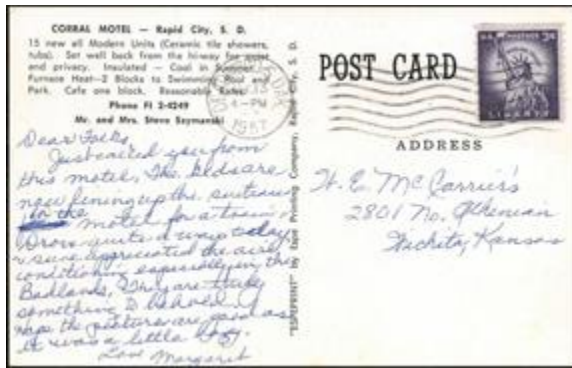 CORRAL MOTEL — Rapid City, S. D.
15 new all Modern Units (Ceramic tile showers,
tubs). Set well back from the hi-way for quiet
and privacy. Insulated — Cool in Summer
Furnace Heat—2 Blocks to Swimming Pool and
Park. Cafe one block. Reasonable Rates.
Phone FI 2-4249
Mr. and Mrs. Steve Szymanski
Dear Folks,
Just called you from
this motel. The kids are
now lining up the suitcases
for the motel for a
Drove quite a ways today
& sure appreciated the air
conditioning especially in the
Badlands. They are truly
something to behold. I
hope the pictures are good as
it was a little hazy.
Love Margaret
"ESPEPRINT" by Espe Printing Company, Rapid City, S. D.
POST CARD
4-PM
1957
U.S. POSTAGE 3¢
LIBERTY
ADDRESS
H. E. McCarrier's
2801 No. Athenian
Wichita, Kansas